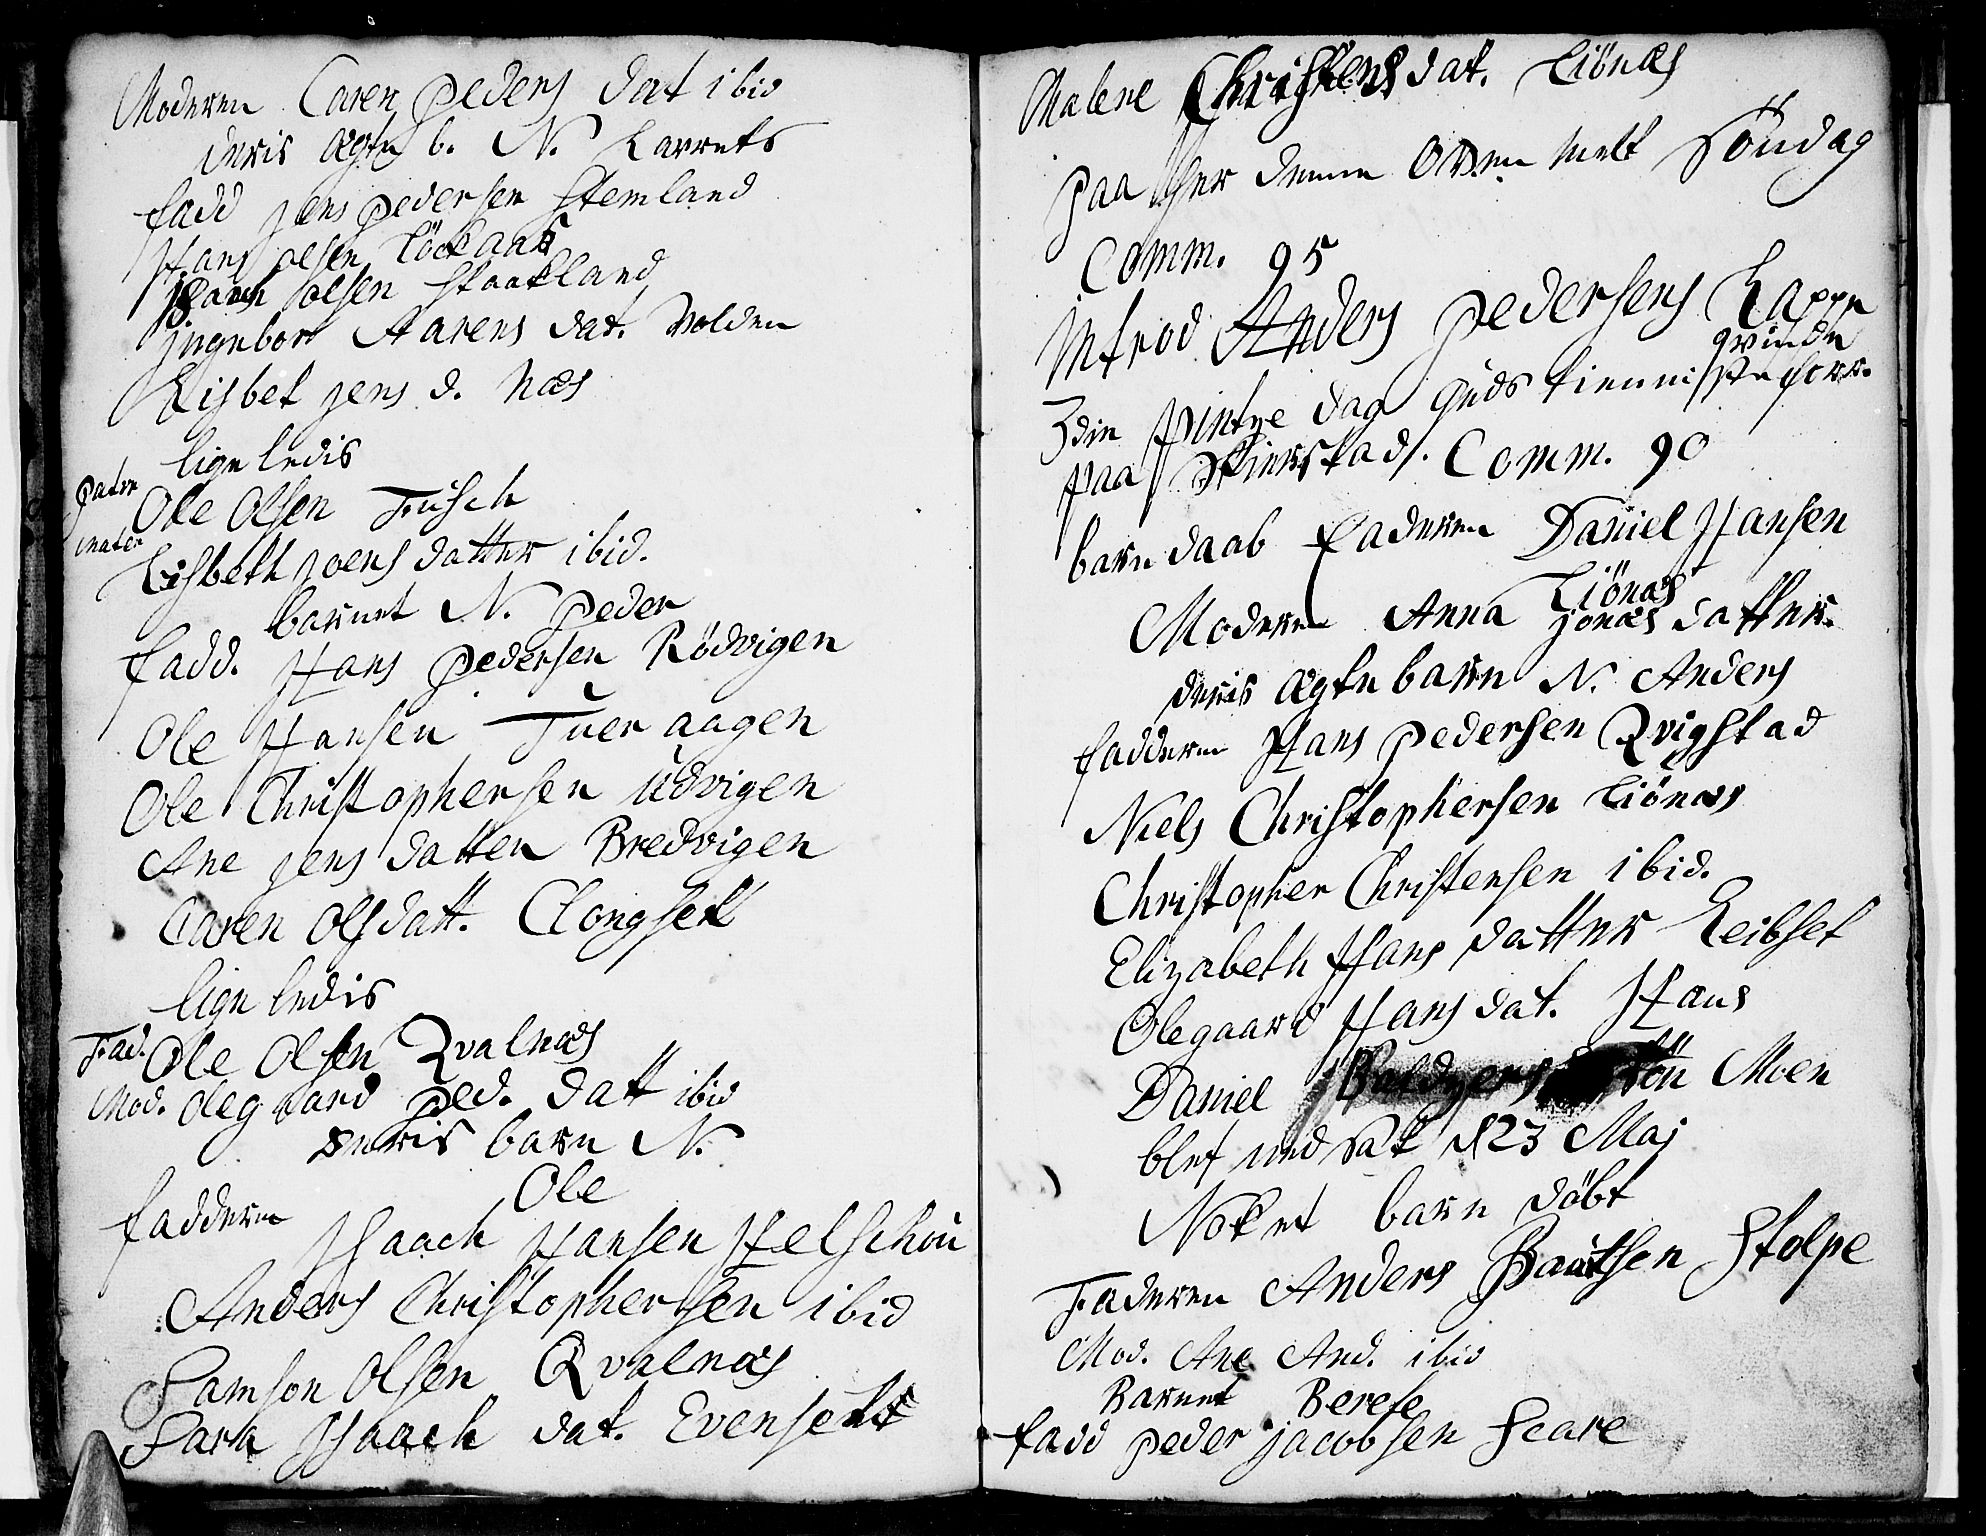 Moderen Caren Peders dat ibid
deris ægte b. N. Larrents
fadd Jens Pedersen Stemland
Hans Olsen Löckaas
Isach Olsen Staatland
Ingebor Aarens dat. Volden
Lisbet Jens d. Næs
ligeledis
pater Ole Olsen Fusch
mater Lisbeth Joens datter ibid.
barnet N. Peder
fadd. Hans Pedersen Rödvigen
Ole Hansen Tuer aagen
Ole Christophersen Udvigen
Ane Jens datter Bredvigen
Caren Ols datt. Clongset
ligeledis
Fad. Ole Olsen Qvalnæs
Mod. Olegaard Ped. datt ibid
deris barn N.
Ole
fadderne
Isaach Hansen Helschou
Anders Christophersen ibid
Samson Olsen Qvalnæs
Sara Isaach dat. Evensett
Malene Christens dat. Liönæs
paa her denne Söndag
Comm. 95
Introd Anders Pedersens Lappe
qvinde
3die Pintze dag Guds tienniste forr.
paa Skierstad. Comm. 90
barn daab Faderen Daniel Hansen
Liönæs
Moderen Anna Jonæs datter.
deris ægte barn N. Anders
fadderne Hans Pedersen Qvigstad
Niels Christophersen Liönæs
Christopher Christensen ibid.
Elizabeth Hans datter Leibset
Olegaard Hans dat. Hans
Daniel Baldzers Sön Moen
blef nedsat d 23 Maj
Noket barn döbt
Faderen Anders Baartsen Stolpe
Mod. Ane And. ibid
Barnet Berete
fadd Peder Jacobsen Scare